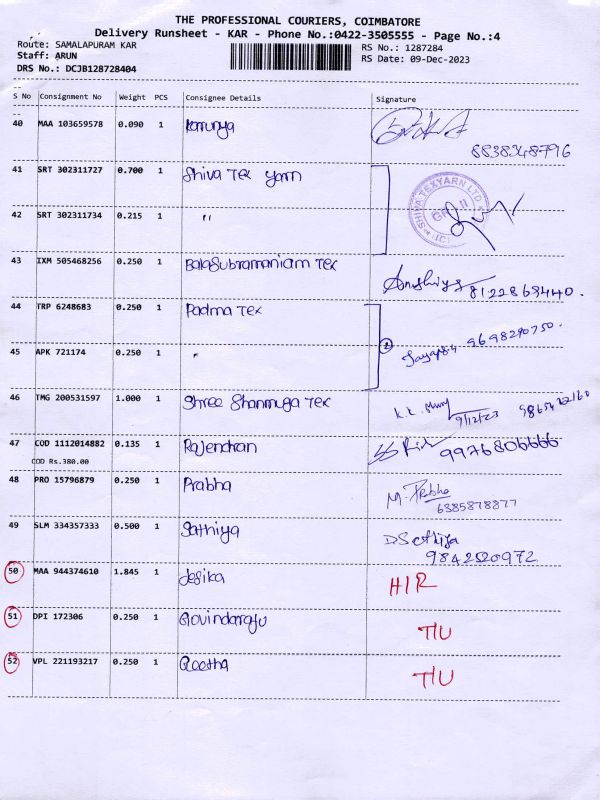 THE PROFESSIONAL COURIERS, COIMBATORE
Delivery Runsheet - KAR - Phone No.:0422-3505555 - Page No.:4
Route: SAMALAPURAM KAR
RS No.: 1287284
Staff: ARUN
RS Date: 09-Dec-2023
DRS No.: DCJB128728404
S No Consignment No Weight PCS Consignee Details Signature
40 MAA 103659578 0.090 1
8838348796
41 SRT 302311727 0.700 1 Shiva Tex yarn
SHIVA TEXYARN LTD
42 SRT 302311734 0.215 1 "
43 IXM 505468256 0.250 1 BalaSubramaniam Tex
8122869440.
44 TRP 6248683 0.250 1 Padma Tex
9698290750.
45 APK 721174 0.250 1 "
46 TMG 200531597 1.000 1 Shree Shanmuga Tex
9/12/23
47 COD 1112014882 0.135 1 Rajendran
9976806666
COD Rs.380.00
48 PRO 15796879 0.250 1 Prabha M. Prabha
6385878877
49 SLM 334357333 0.500 1 Sathiya D Sathiya
9842520972
50 MAA 944374610 1.845 1 Jesika H/R
51 DPI 172306 0.250 1 Govindaraju T/U
52 VPL 221193217 0.250 1 Geetha T/U